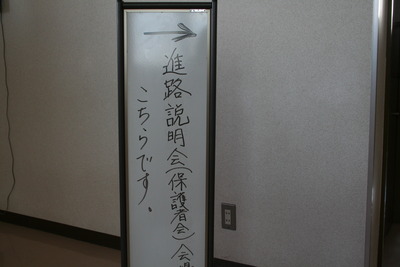 →
進路説明会(保護者会)会場
こちらです。